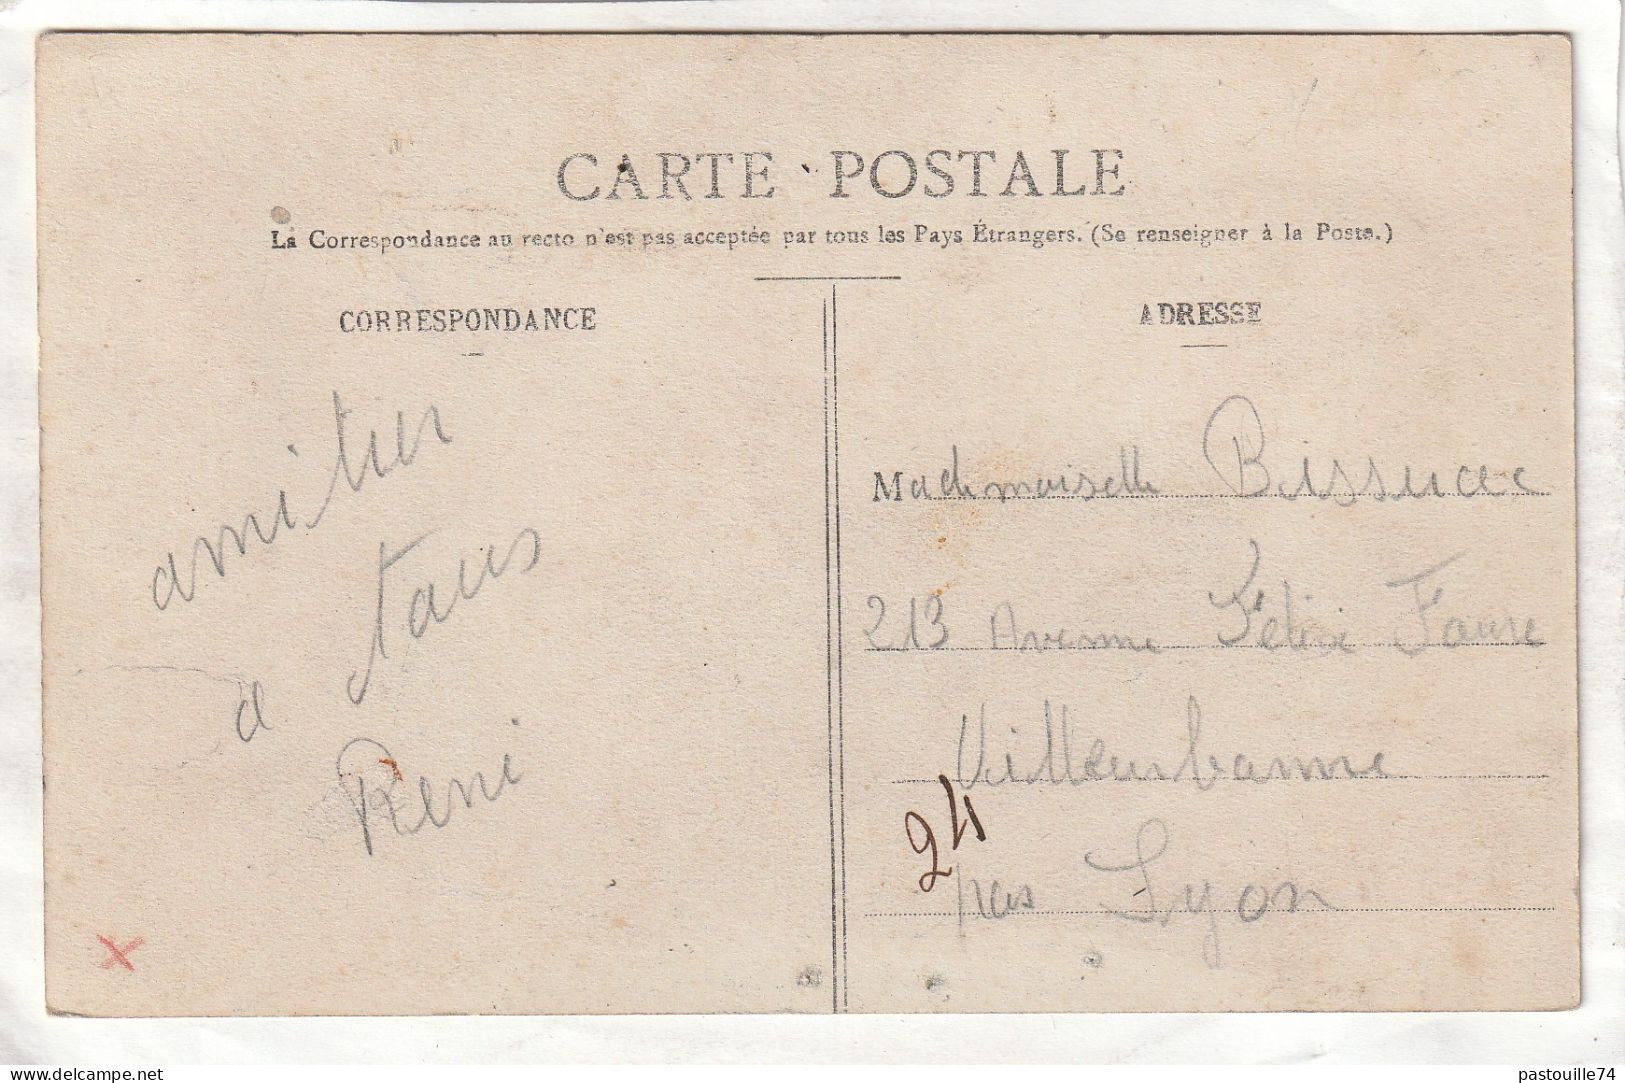 CARTE POSTALE
La Correspondance au recto n'est pas acceptée par tous les Pays Étrangers. (Se renseigner à la Poste.)
CORRESPONDANCE
amitier
a taus
Reni
ADRESSE
Mademoiselle Bissuec
213 Avenue Félix Faure
Villeurbanne
24
pas Lyon
pastouille74